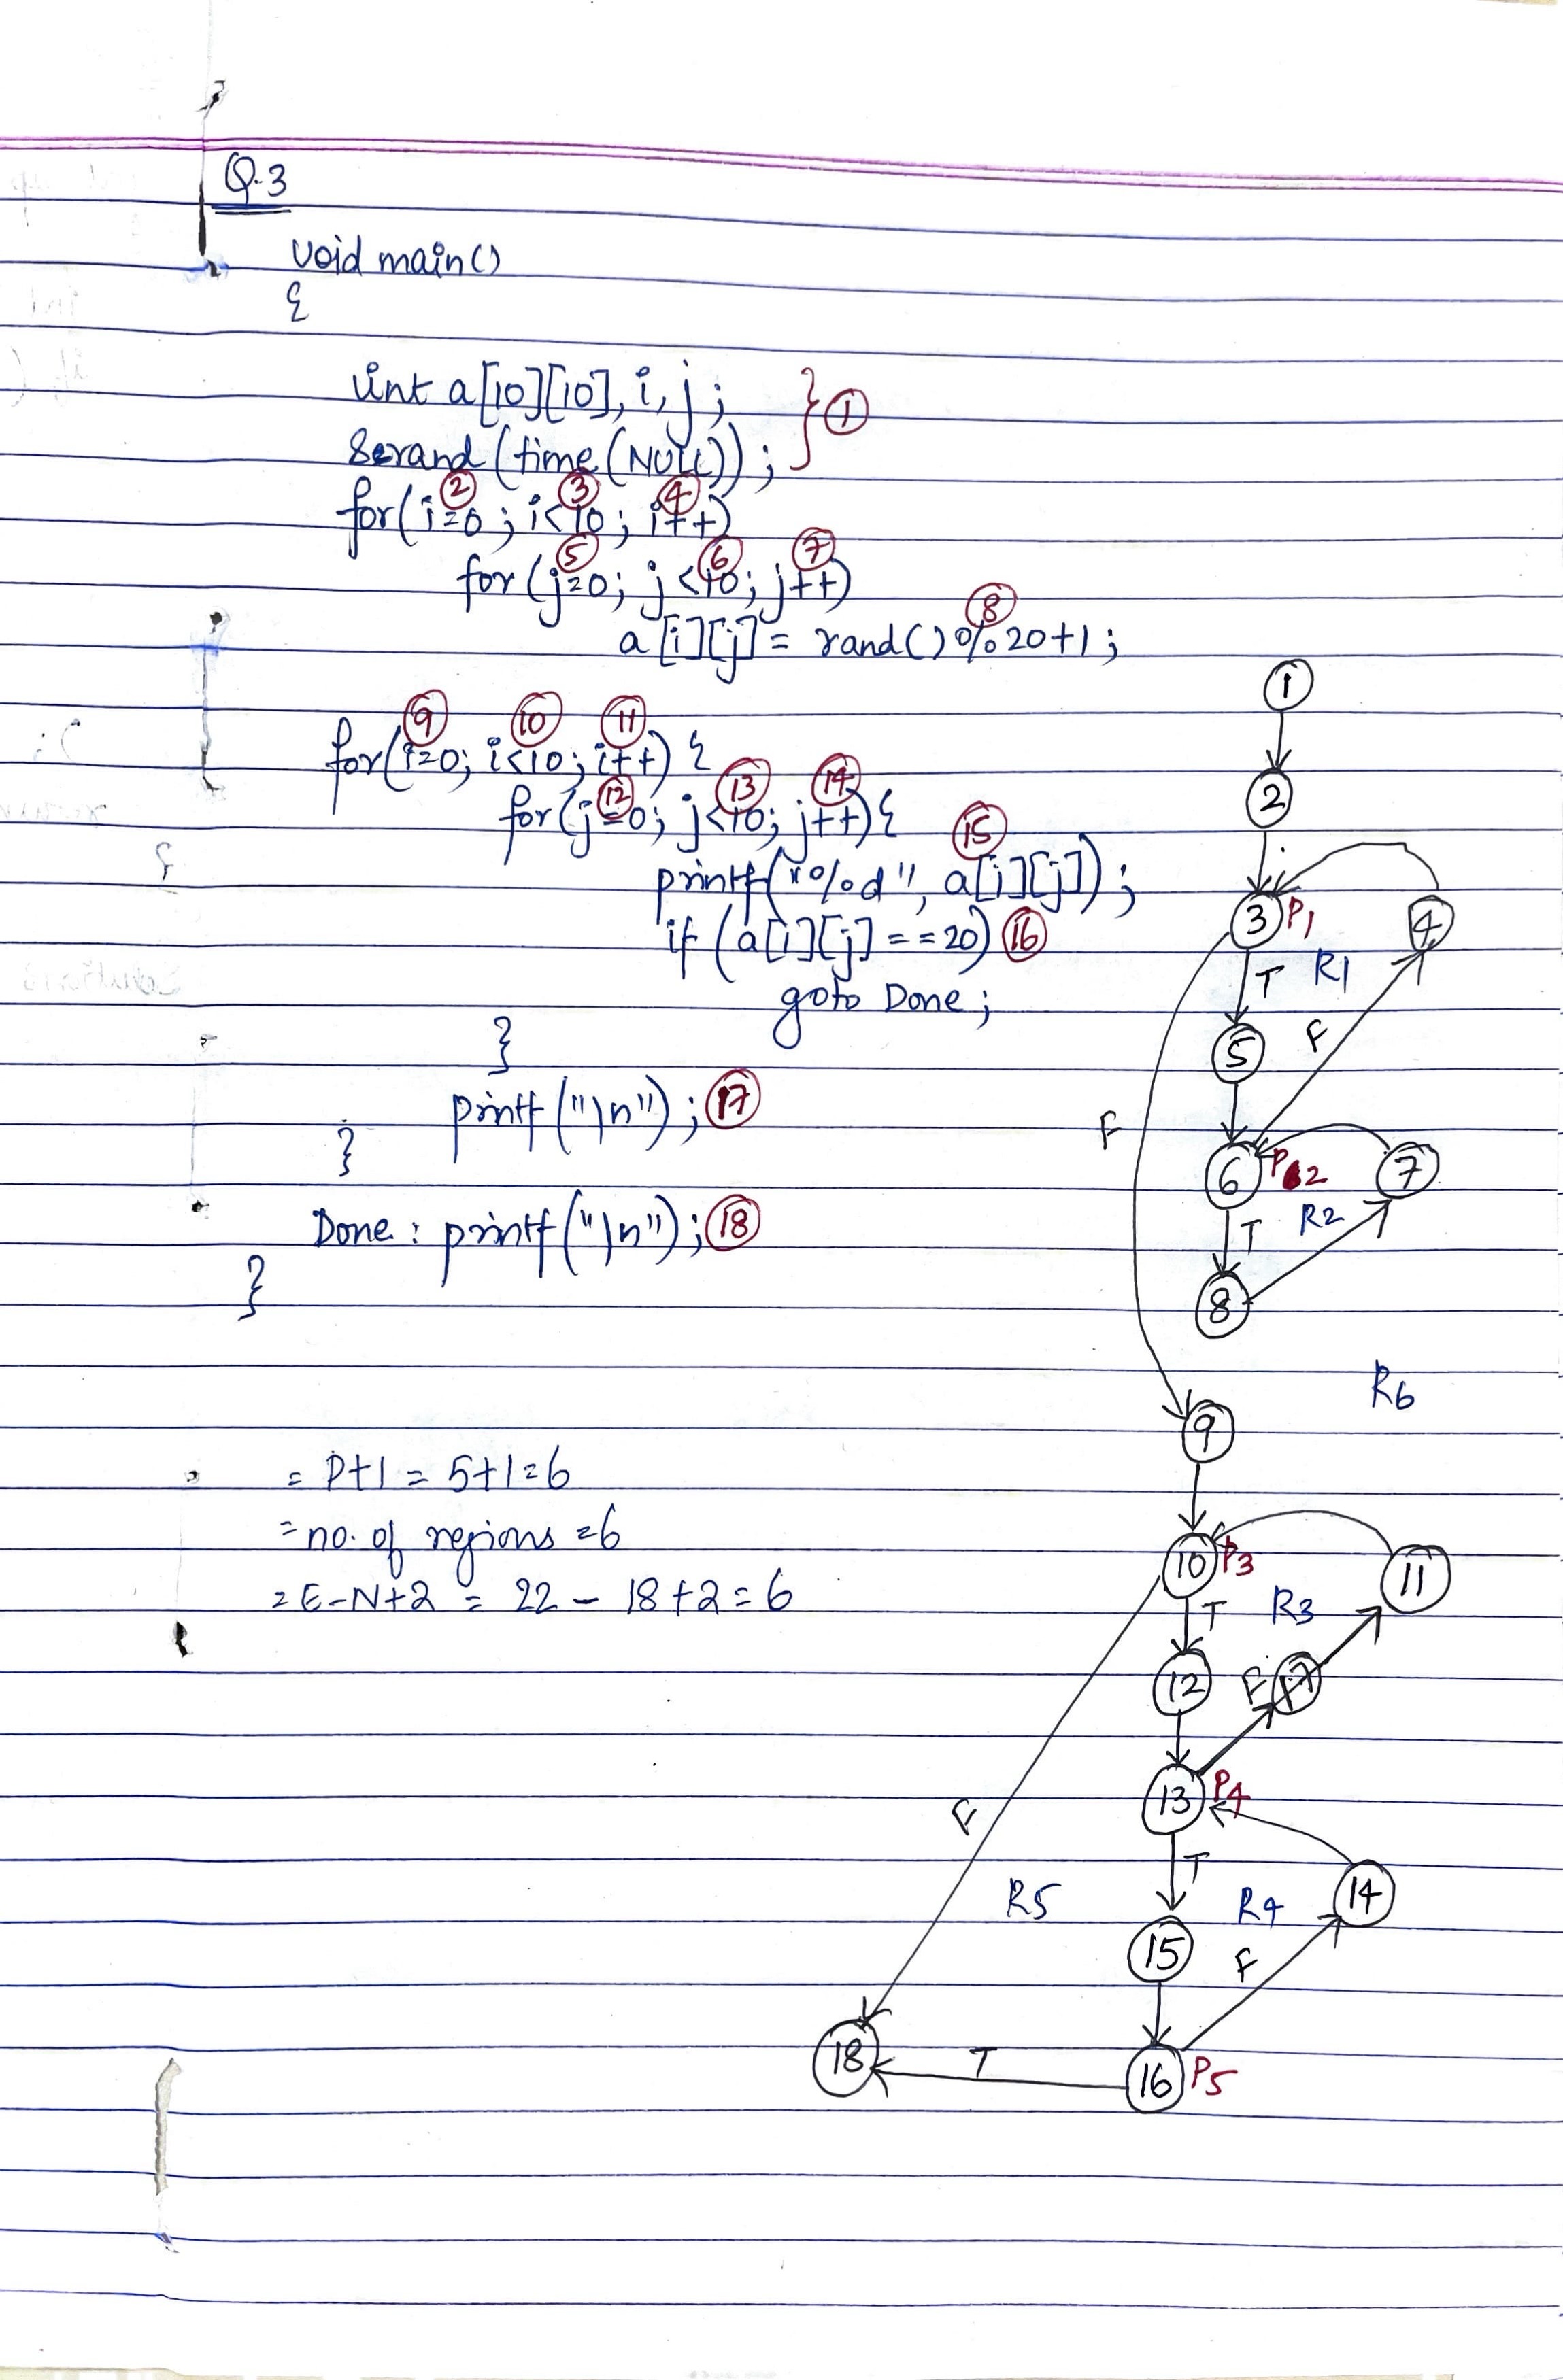 Q.3
void main()
{
int a[10][10], i, j; } ①
srand(time(NULL));
② ③ ④
for(i=0; i<10; i++)
⑤ ⑥ ⑦
for(j=0; j<10; j++)
⑧
a[i][j] = rand()%20+1;
⑨ ⑩ ⑪
for(i=0; i<10; i++) {
⑫ ⑬ ⑭
for(j=0; j<10; j++){
⑮
printf("%d", a[i][j]);
if (a[i][j]==20) ⑯
goto Done;
}
printf("\n"); ⑰
}
Done: printf("\n"); ⑱
}
= P+1 = 5+1=6
= no. of regions =6
= E-N+2 = 22 - 18+2=6
1
2
3 P1 4
T R1
5 F
F
6 P2 7
T R2
8
R6
9
10 P3 11
T R3
12 F 17
13 P4
F
T 14
R5 R4
15 F
18 T 16 P5